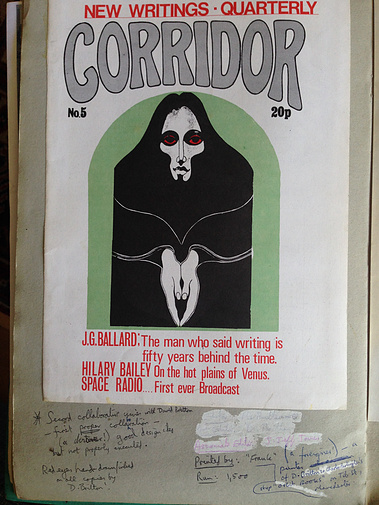 NEW WRITINGS · QUARTERLY
CORRIDOR
No.5
20p
J.G.BALLARD: The man who said writing is
fifty years behind the time.
HILARY BAILEY On the hot plains of Venus.
SPACE RADIO.... First ever Broadcast
* Second collaborative with David Britton
- first proper collaboration -
good design idea
but not properly executed.
Red eyes hand-
in all copies by
D. Britton.
Printed by: "Frank" (a foreigner) - a
printer
Run: 1,500